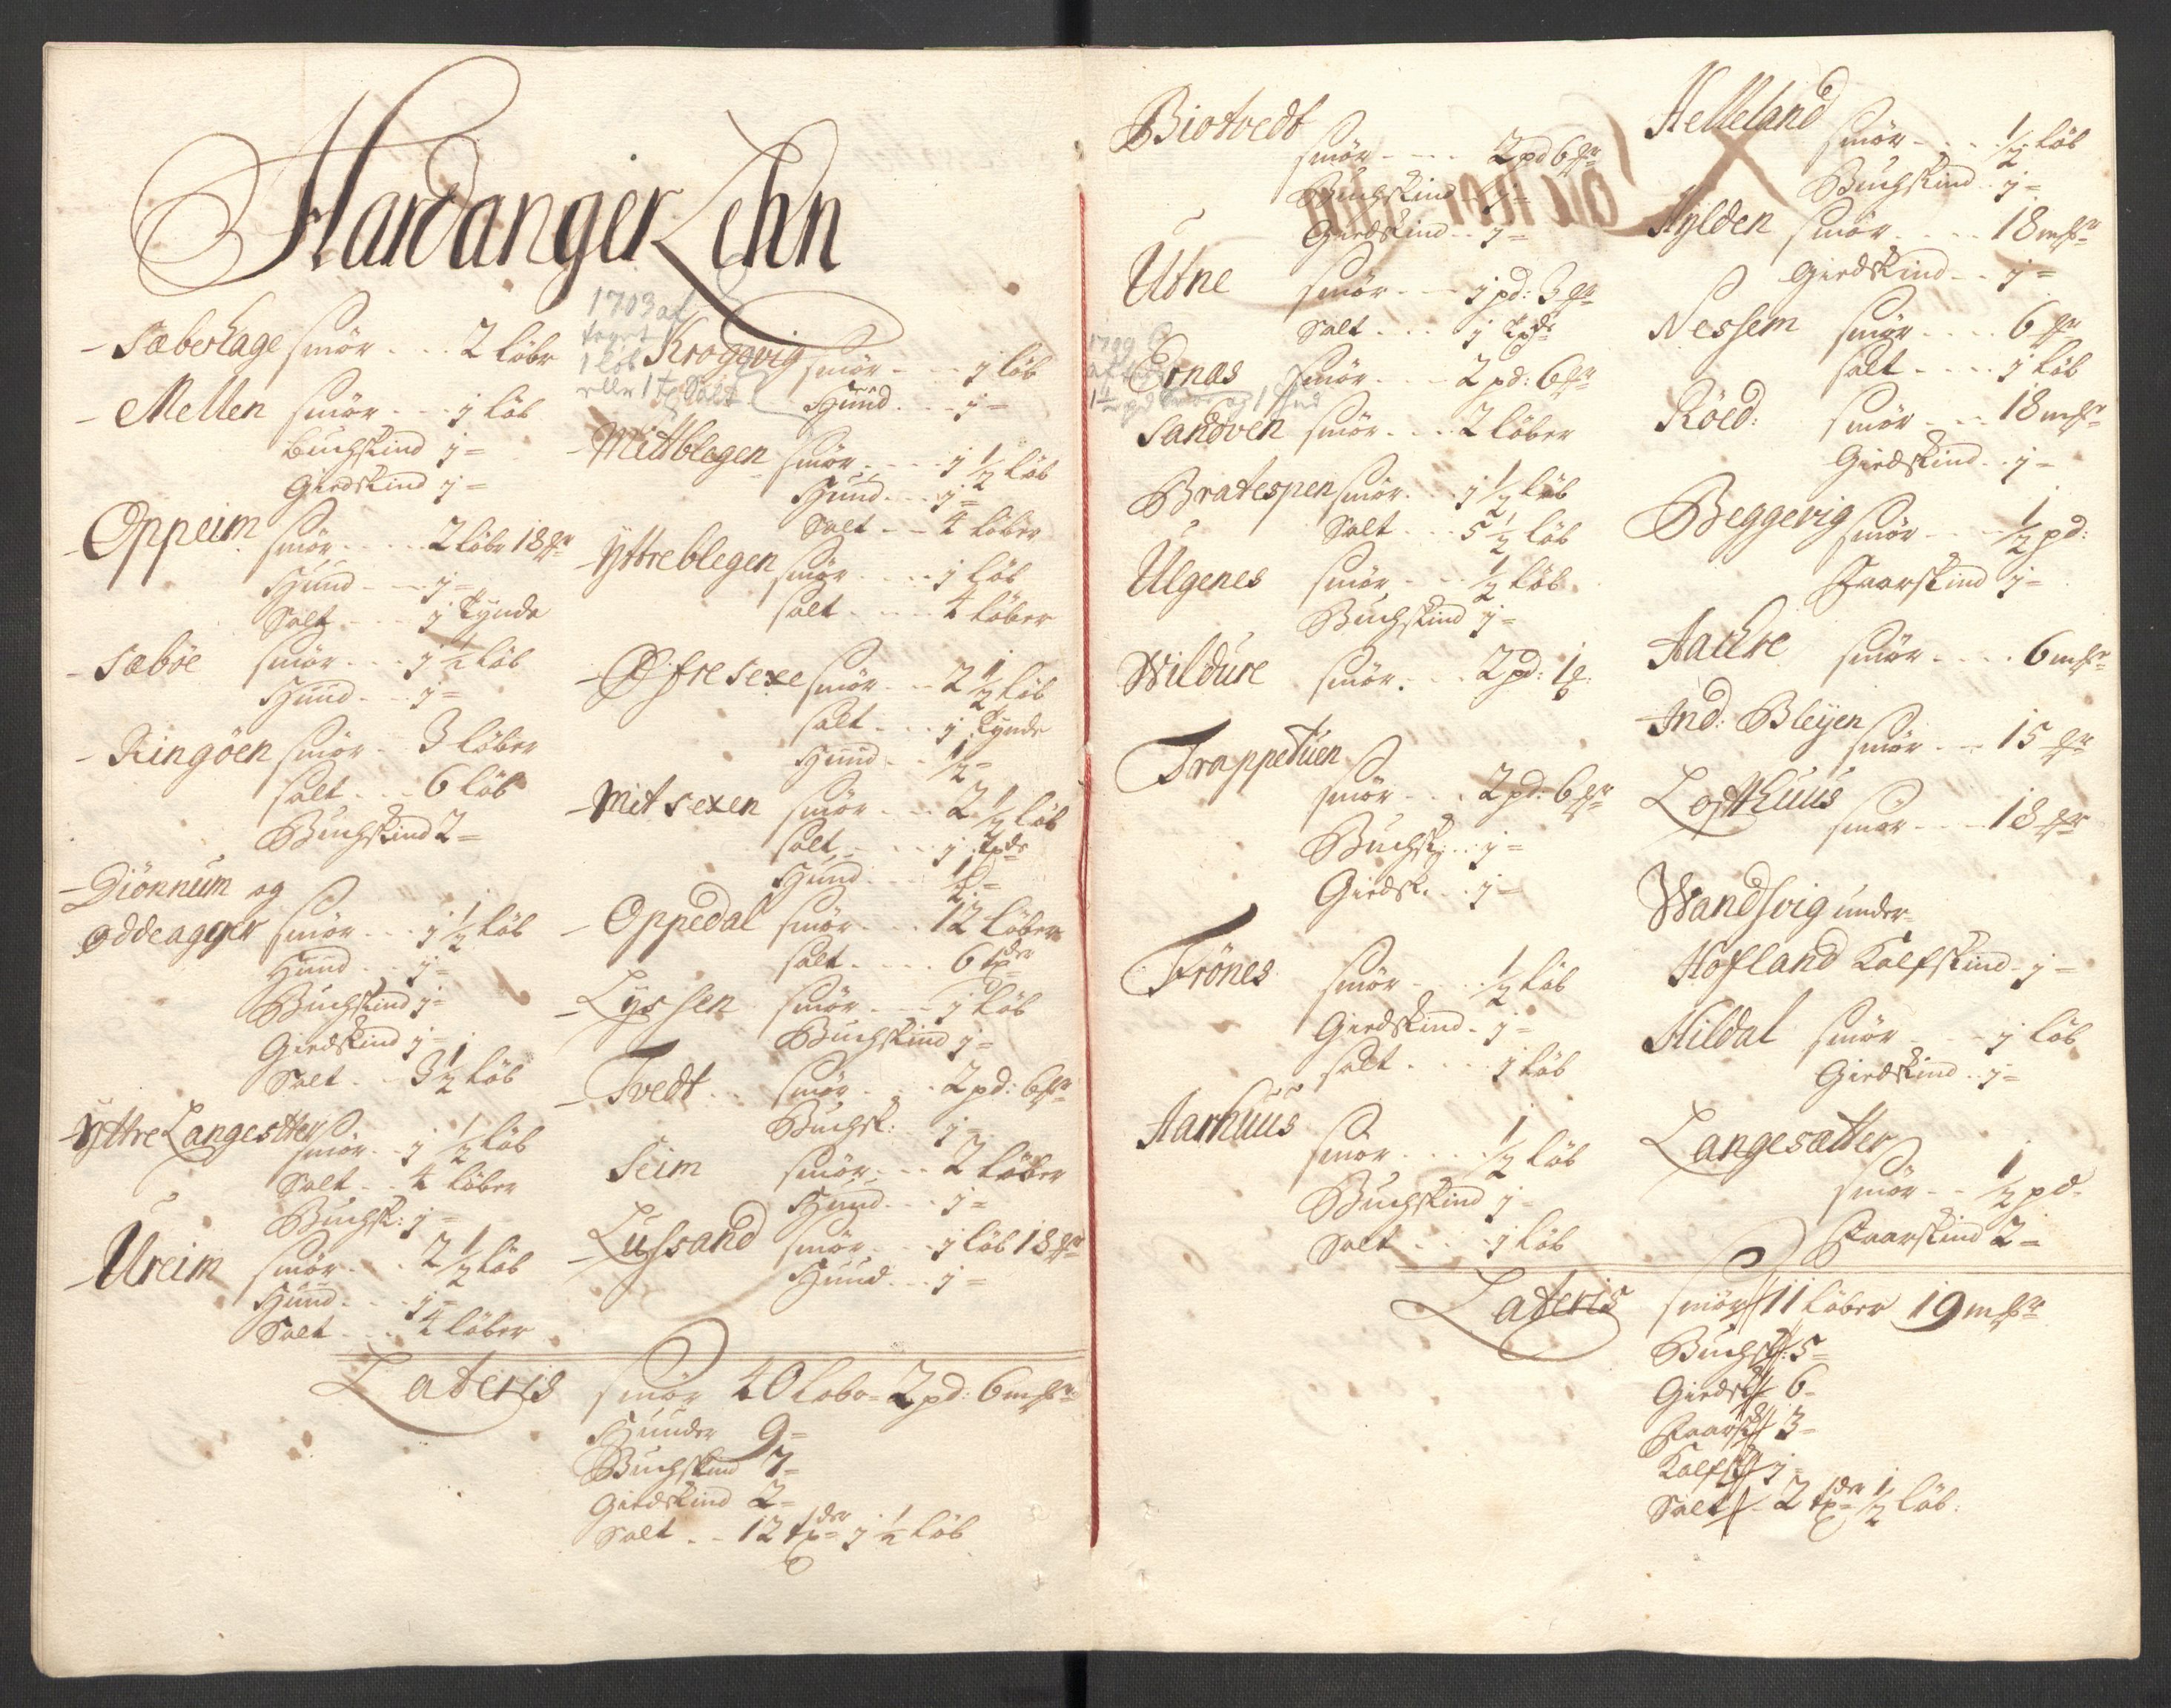 Hardanger Lehn
- Sæberhage smör . . . 2 löbr
- Mellen smör . . . j löb
Buchskind j =
Giedskind j =
- Oppeim smör . . . . 2 löbr 18 mr
Huud . . . j =
Salt . . . j tynde
- Sæbøe smör . . . j ½ löb
Huud . . . j =
- Ringöen smör . 3 löber
salt . . . 6 löb
Buchskind 2 =
- Diönnum og
oddeagger smör . . . j ½ löb
Huud . . j =
Buchskind j =
Giedskind j =
Salt . . 3 ½ löb
- Yttre Langesetter
smör . . j ½ löb
Salt . . 4 löber
Buchsk: j =
- Ureim smör . . . 2 ½ löb
Huud . . . j =
Salt . . . 4 löber
1703 af
1 löb
eller 1 t Salt
Krogevig smör . . . j löb
Huud . . . j =
- Mittblegen smör . . . j ½ löb
Huud . . . j =
Salt . . . 4 löber
- Yttreblegen smör . . . . j löb
salt . . . . 4 löber
- Øfre sexe smör . . . 2 ½ löb
salt . . . j tynde
Huud . . . ½ =
- Mit sexen smör . . . 2 ½ löb
salt . . . j tde
Huud . . . ½ =
- Oppedal smör . . . 12 löber
salt . . . . 6 tder
- Lyssen smör . . . j löb
Buchskind j =
- Tvedt . . smör . . . 2 pd: 6 mr
Buchsk: j =
Seim smör . . . 2 löber
Huud . . . j =
- Lussand smör . . . j löb 18 mr
Huud . . . j =
Lateris smör 40 löbr = 2 pd: 6 mr
Huuder 9 =
Buchskind 7 =
Giedskind 2 =
Salt . . 12 tder j ½ löb
Biotvedt
smör . . . . 2 pd 6 mr
Buchskind j =
Giedskind . . j =
Utne smör . . . j pd: 3 mr
Salt . . . j tde
Ernæs smör . . . 2 pd: 6 mr
Sandven smör . . . 2 löber
Bratespen smör . . j ½ löb
Salt . . . 5 ½ löb
Ulgenes smör . . . ½ löb
Buchskind j =
Wildure smör . . . 2 pd: 1
Trappetuen
smör . . . 2 pd: 6 mr
Buchsk: . . j =
Giedsk: . . j =
Frönes smör . . . ½ löb
Giedskind . j =
salt . . . . j löb
Aarhuus
smör . . . . ½ löb
Buchskind j =
Salt . . . j löb
Helleland
smör . . . . ½ löb
Buchskind . . j =
Hylden smör . . . . 18 mr
Giedskind . . j =
Nessem smör . . . . 6 mr
salt . . . . j löb
Röed: smör . . . 18 mr
Giedskind . . j =
Beggevig smör . . . ½ pd:
Faarskind j =
Aackre smör . . . . 6 mr
Ind: Bleyen
smör . . . 15 mr
Lofthuus
smör . . . 18 mr
Wandsvig under
Hofland Kalfskind . j =
Hildal smör . . . j löb
Giedskind . . j =
Langesætter
smör . . ½ pd.
Faarskind 2 =
Lateris smör 11 löber 19 mr
Buchsk: 5 =
Giedsk 6 =
Faarsk 3 =
Kalfsk j =
Salt . 2 tder ½ löb.